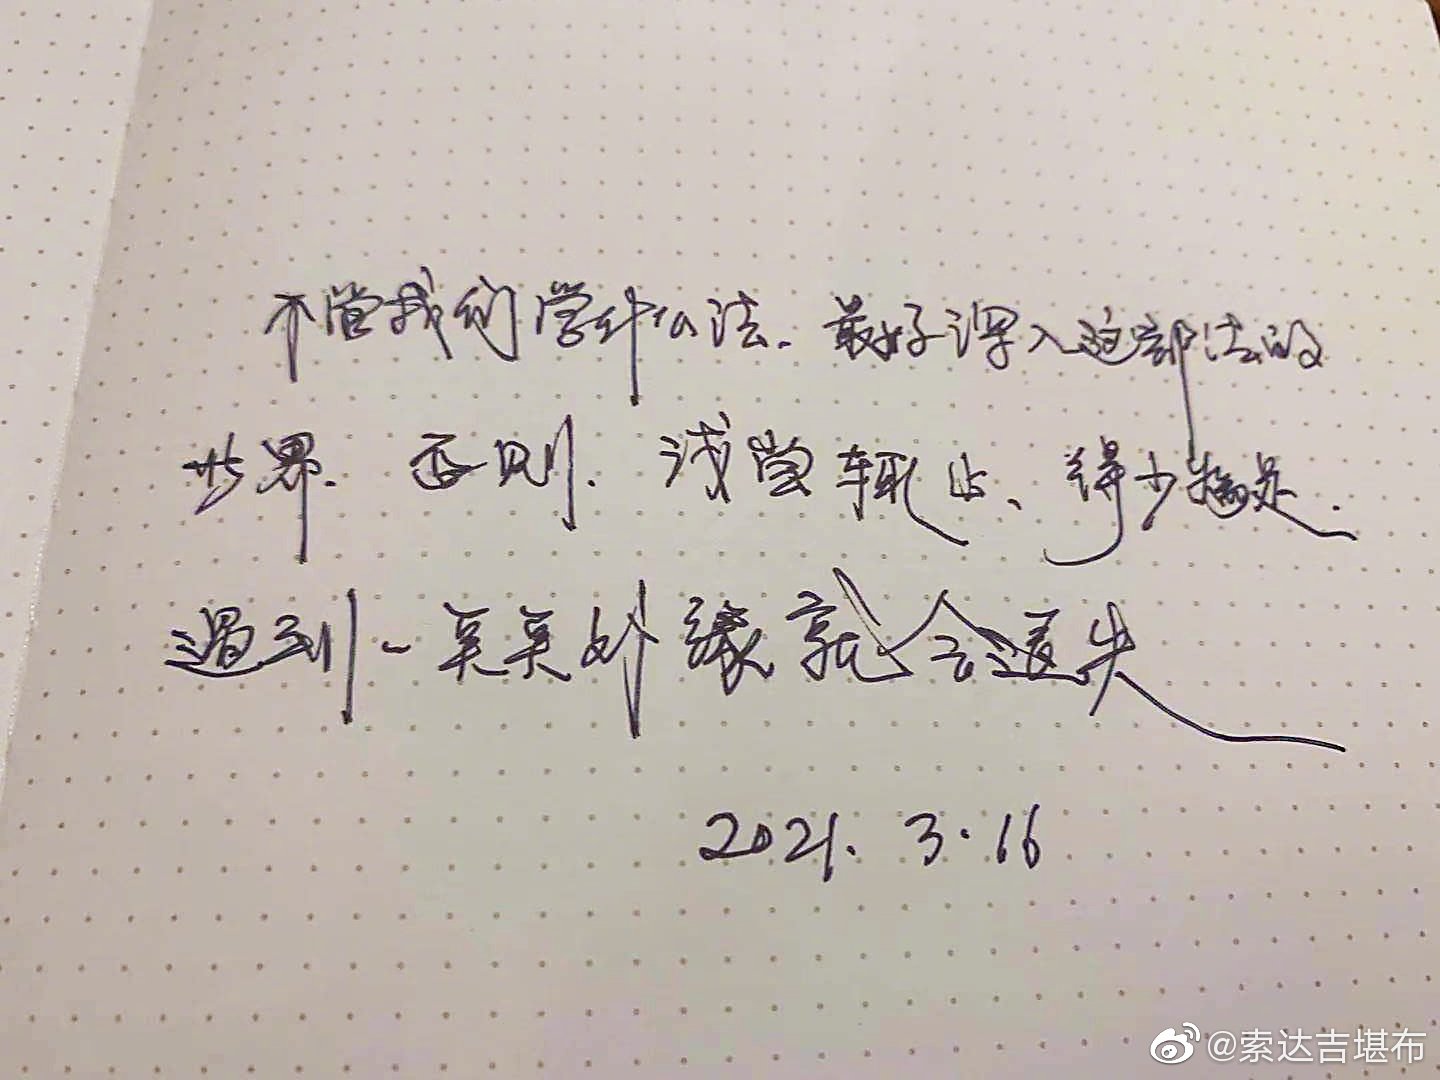 不管我们学什么法，最好深入这部法的
世界。否则，浅尝辄止、得少为足，
遇到一点点外缘就会退失
2021.3.16
@索达吉堪布